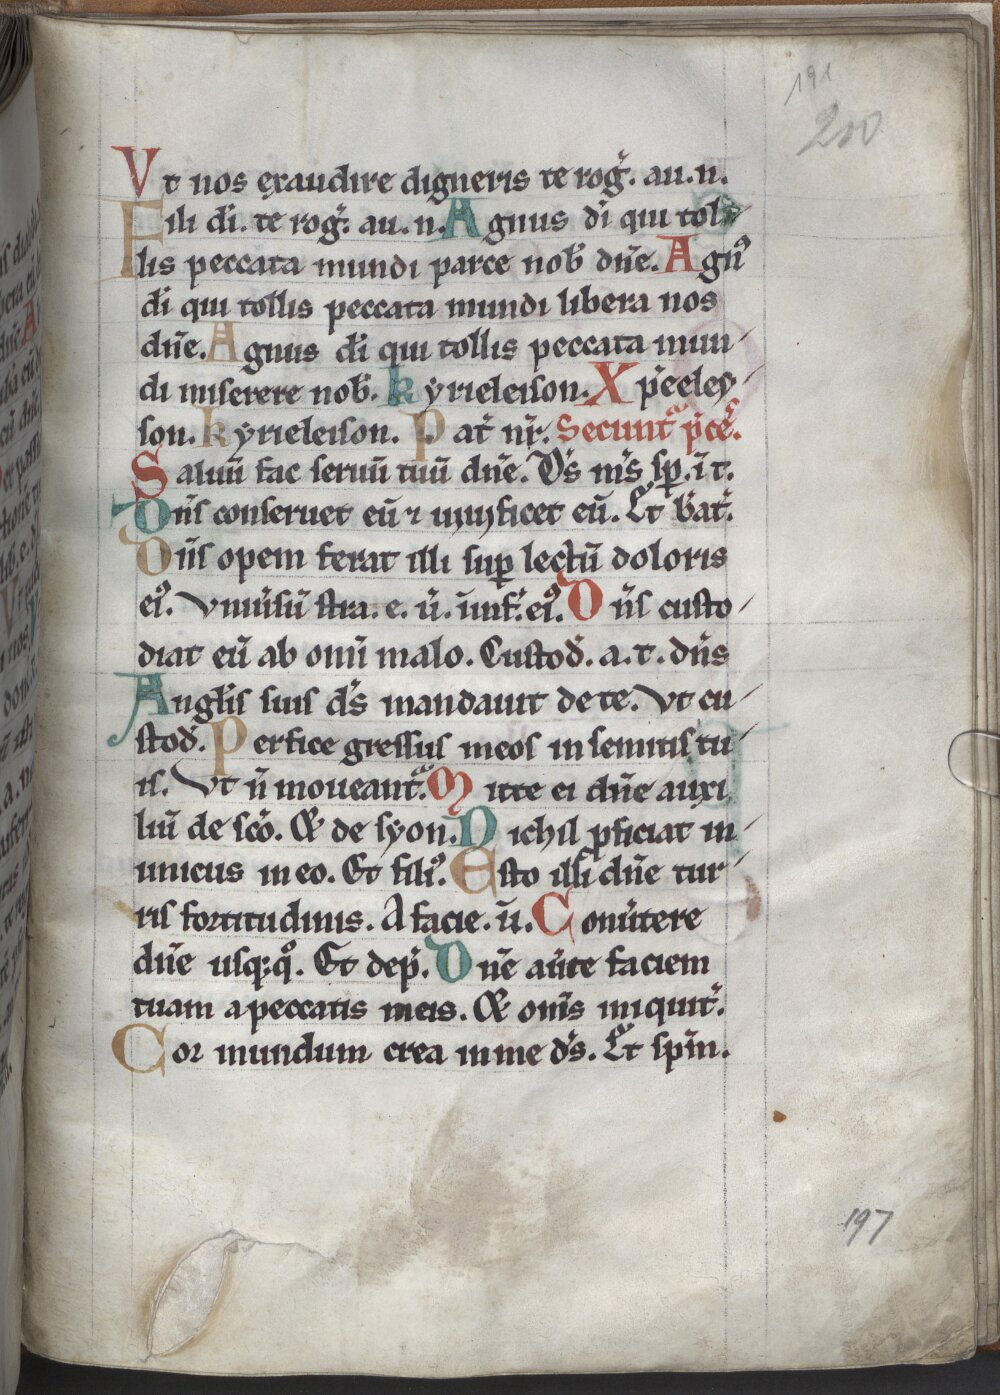 191
200
Vt nos exaudire digneris te rog̃. au. n.
Fili dī. te rog̃. au. n. Agnus dī qui tol
lis peccata mundi parce nob̃ dñe. Agnꝰ
dī qui tollis peccata mundi libera nos
dñe. Agnus dī qui tollis peccata mun
di miserere nob̃. kyrieleison. Xp̄eeley
son. kyrieleison. Pat̃ nr̃. Secunt᷑ p̄ceˢ.
Saluū fac seruū tuū dñe. Ds̄ ms̄ sp̱. ī t.
Dns̄ conseruet eū ⁊ uiuificet eū. Et b̄at̃.
Dns̄ opem ferat illi suꝑ lectū doloris
eiꝰ. Vniũsū stra. e. ũ. ĩnf̃. eiꝰ. Dns̄ custo
diat eū ab om̄i malo. Custod̃. a. t. dn̄s
Angl̃is suis ds̄ mandauit de te. Vt cu
stod̃. Perfice gressus meos in semitis tu
is. Vt ñ moueant᷑. Mitte ei dñe auxi
liū de sc̄o. & de syon. Nichil ꝓficiat in
imicus in eo. Et filiꝰ. Esto illi dñe tur
ris fortitudinis. A facie. ũ. Conũtere
dñe usq;qͦ. Et dep̃. Dñe aũte faciem
tuam a peccatis meis. & om̄s iniquit̃.
Cor mundum crea in me ds̄. Et spm̄.
197